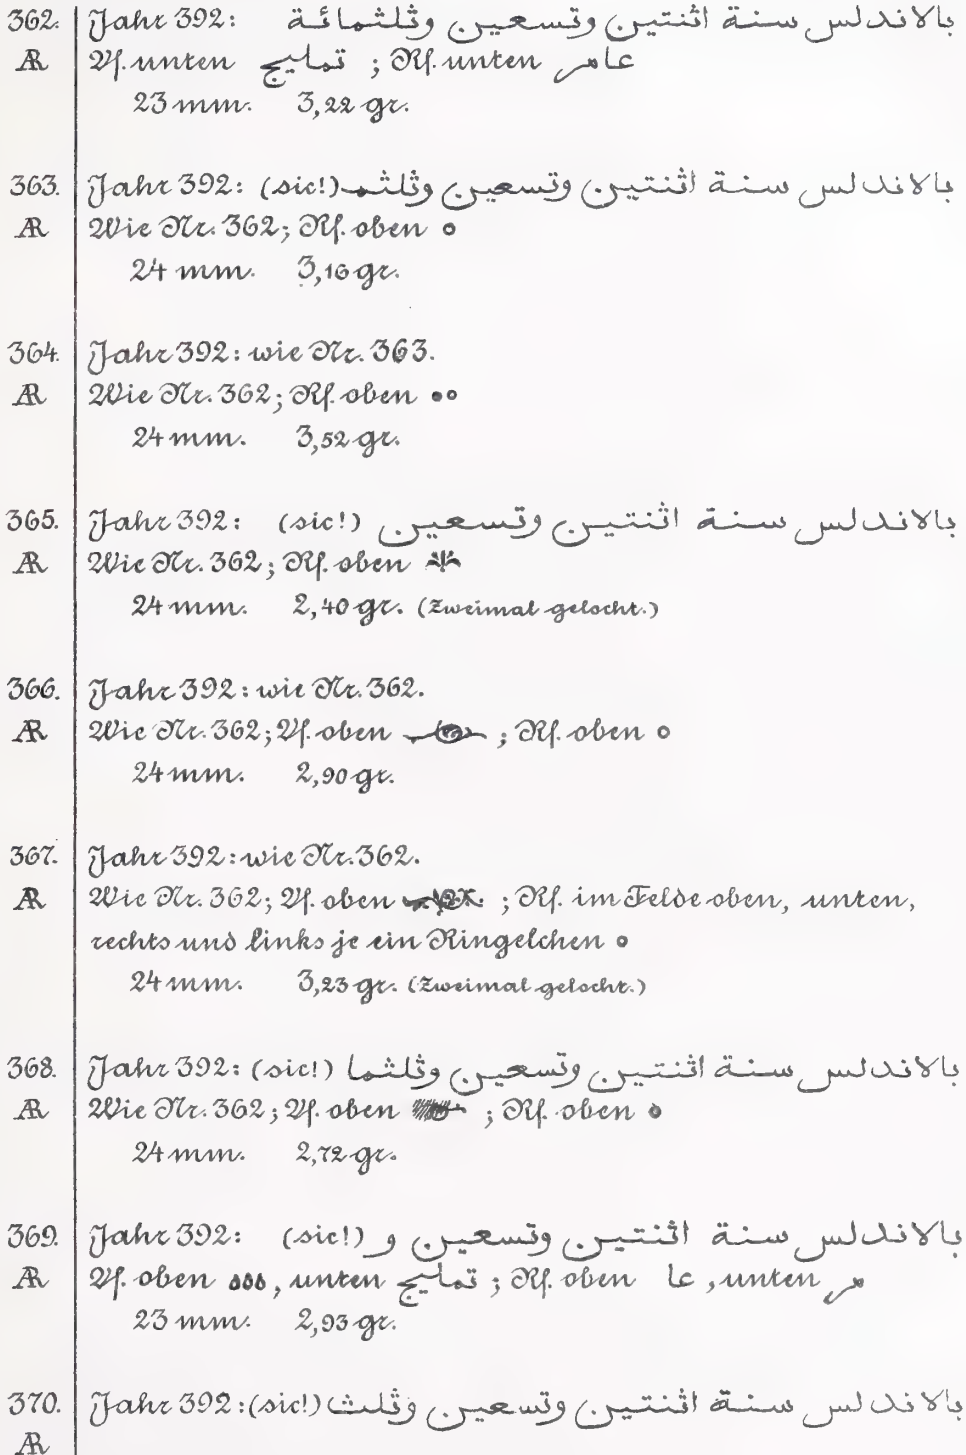 362. Jahr 392: بالاندلس سنة اثنتين وتسعين وثلثمائة
AR Vf. unten تمليج ; Rf. unten عامر
23 mm. 3,22 gr.
363. Jahr 392: (sic!) بالاندلس سنة اثنتين وتسعين وثلثمـ
AR Wie Nr. 362; Rf. oben o
24 mm. 3,16 gr.
364. Jahr 392: wie Nr. 363.
AR Wie Nr. 362; Rf. oben oo
24 mm. 3,52 gr.
365. Jahr 392: (sic!) بالاندلس سنة اثنتين وتسعين
AR Wie Nr. 362; Rf. oben
24 mm. 2,40 gr. (Zweimal gelocht.)
366. Jahr 392: wie Nr. 362.
AR Wie Nr. 362; Vf. oben ; Rf. oben o
24 mm. 2,90 gr.
367. Jahr 392: wie Nr. 362.
AR Wie Nr. 362; Vf. oben ; Rf. im Felde oben, unten,
rechts und links je ein Ringelchen o
24 mm. 3,23 gr. (Zweimal gelocht.)
368. Jahr 392: (sic!) بالاندلس سنة اثنتين وتسعين وثلثما
AR Wie Nr. 362; Vf. oben ; Rf. oben o
24 mm. 2,72 gr.
369. Jahr 392: (sic!) بالاندلس سنة اثنتين وتسعين و
AR Vf. oben ooo, unten تمليج ; Rf. oben عا, unten مر
23 mm. 2,93 gr.
370. Jahr 392: (sic!) بالاندلس سنة اثنتين وتسعين وثلث
AR